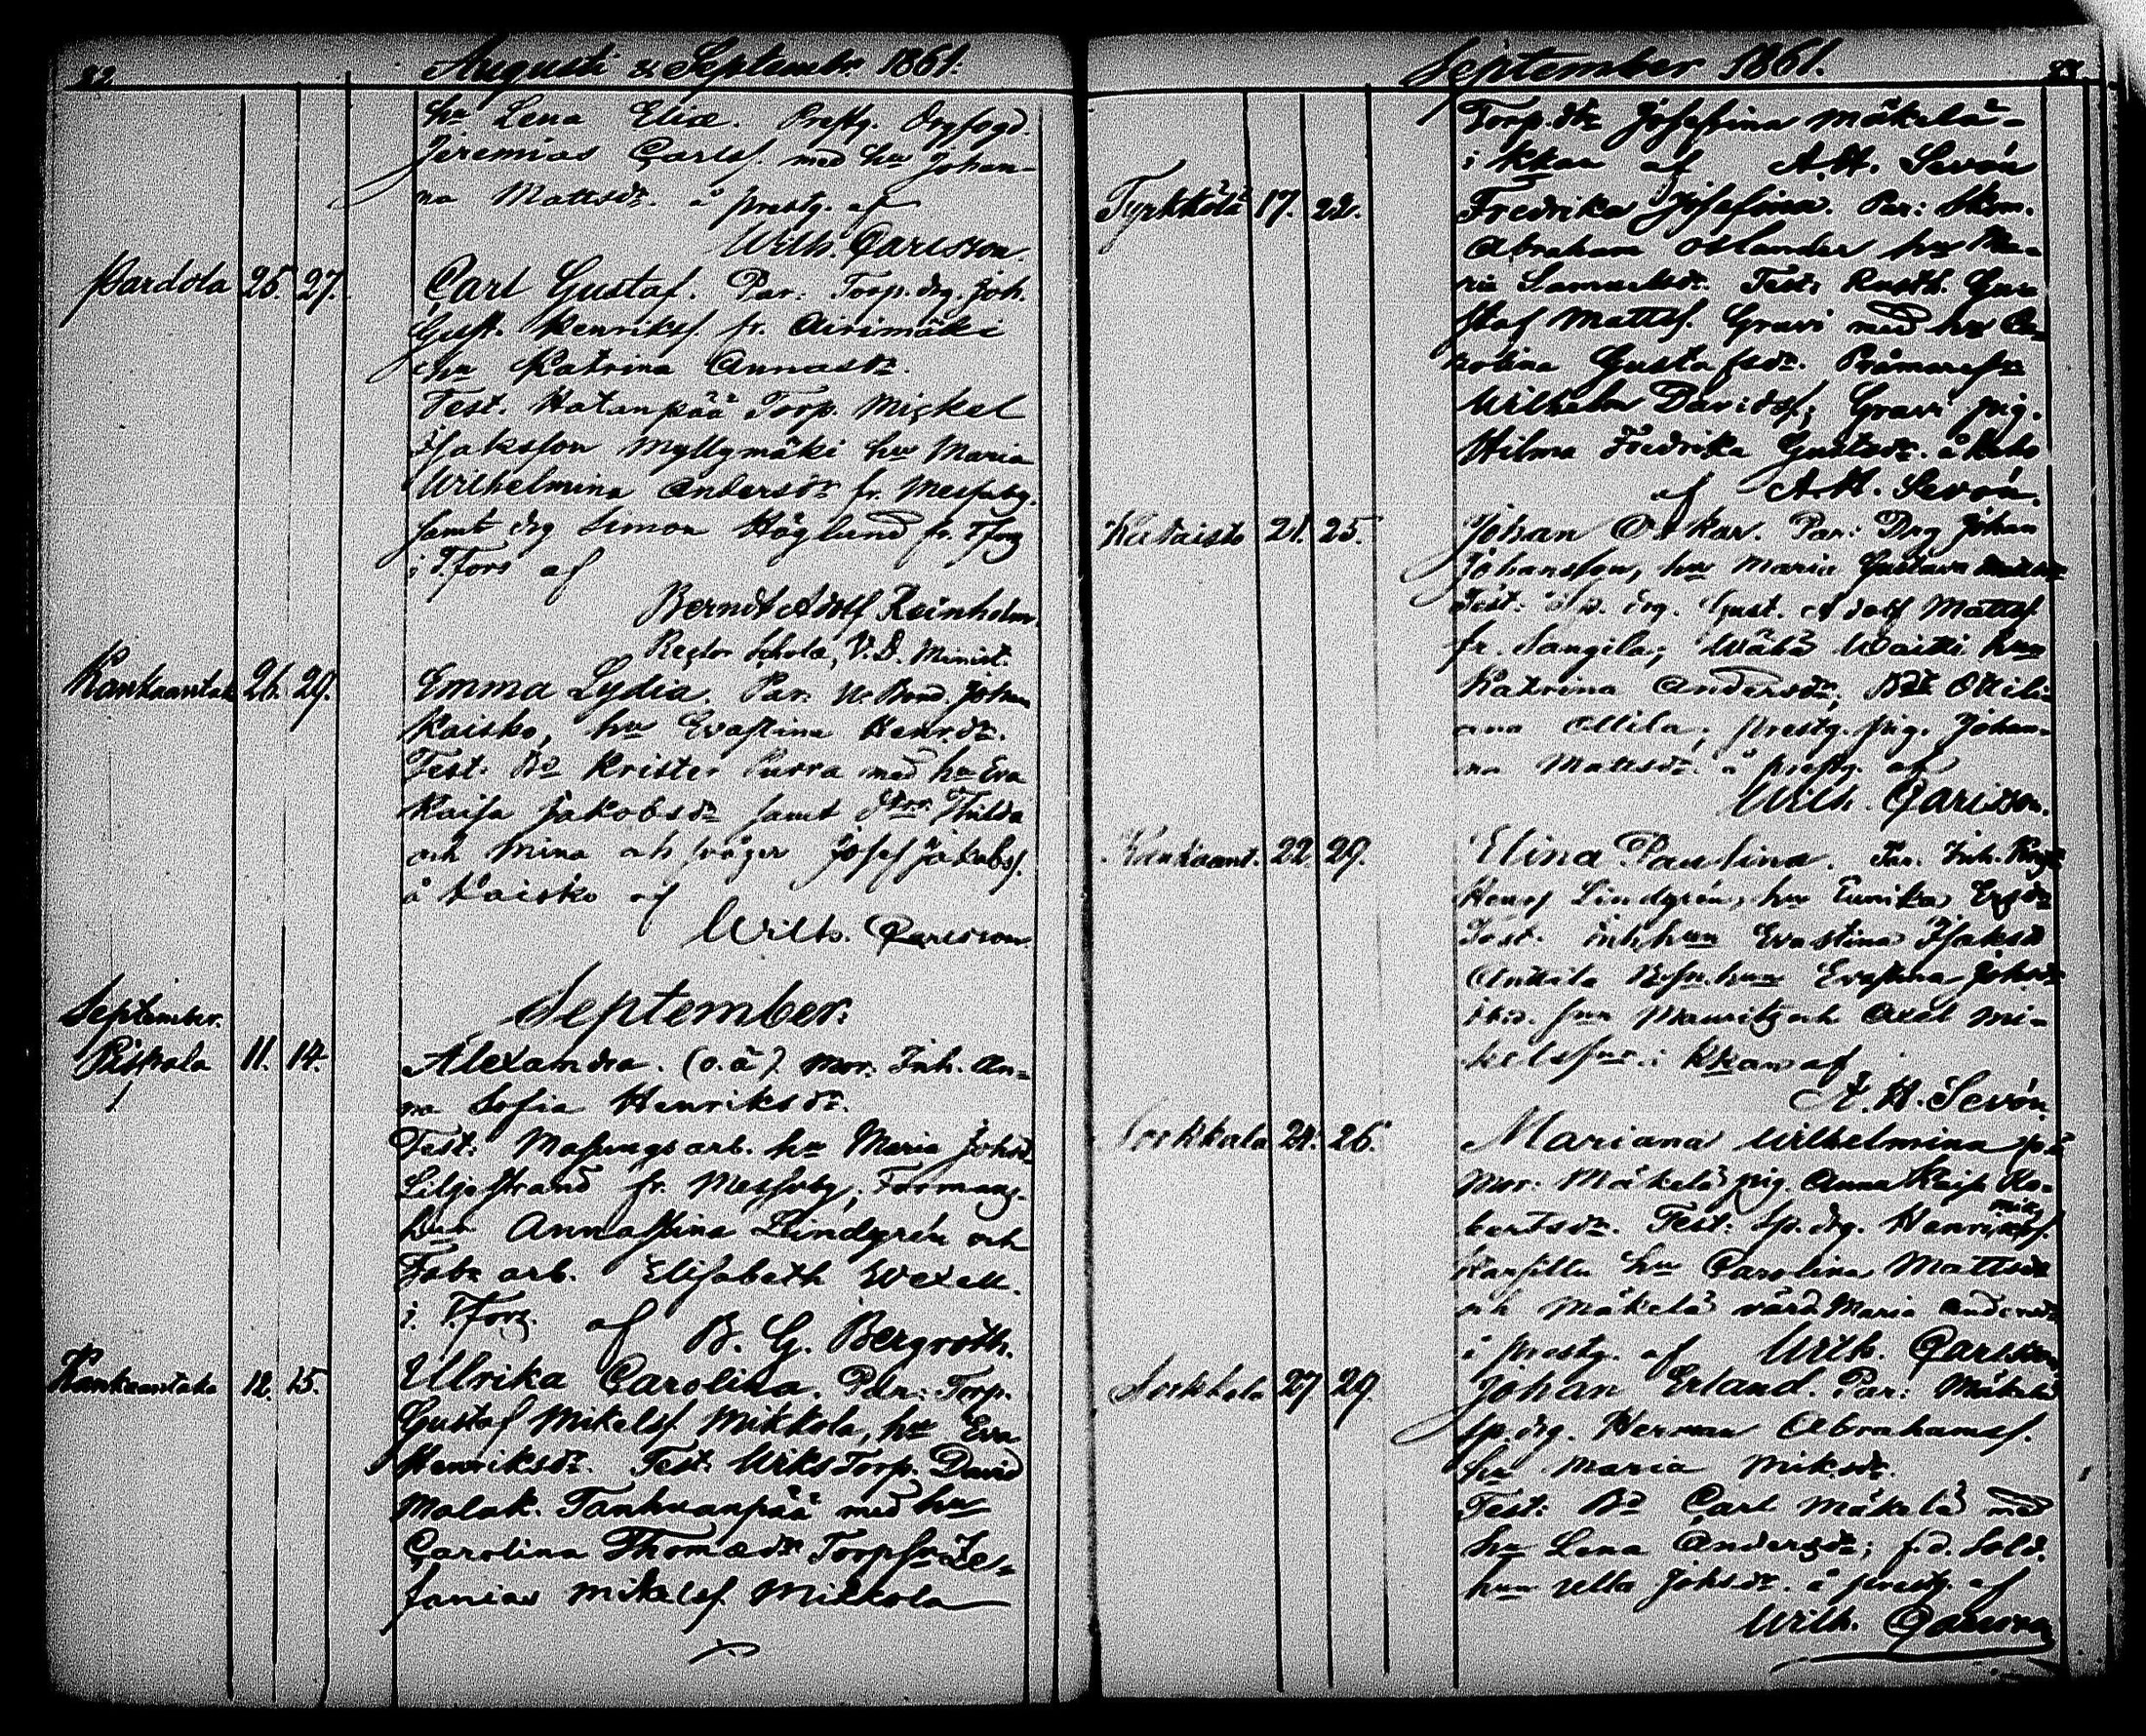 82.
Augusti & Septembr. 1861.
hu Lena Elia. Prestg. Drgfogd.
Jeremias Carlss. med hu Johan-
na Mattsdr. å prestg. af
Wilh. Carlsson.
Pardola 25. 27. Carl Gustaf. Par: Torp. drg. Joh.
Gust. Henrikss. fr. Airimäki
hu Katrina Annasdr.
Test. Hatanpää Torp. Mickel
Isaksson Myllymäki hu Maria
Wilhelmina Andersdr fr. Messuby.
samt drg Simon Höglund fr. Tfors
i Tfors af
Berndt Adolf Reinholm.
Rector Scholæ, V.D. Minist.
Kankaantaka 26. 29. Emma Lydia. Par: Bond. Johan
Kaisko, hu Evastina Henrdr.
Test: Bd Krister Purra med hu Eva
Kaisa Jakobsdr samt Thilda
och Mina och Josef Jakobss.
å Kaisko af
Wilh. Carlsson
September.
September.
Pispala 11. 14. Alexandra. (o.ä). Mor: Inh. An-
na Sofia Henriksdr.
Test: Masungsarb. hu Maria Johsdr
Liljestrand fr. Messuby; Formang.
hun Annastina Lindgrén och
Fabr. arb. Elisabeth Wexell.
i Tfors. af B. G. Bergroth.
Kankaantaka 12. 15. Ullrika Carolina. Par: Torp.
Gustaf Mikelss Mikkola, hu Eva
Henriksdr. Test: Torp. David
Malak. Tanhuanpää med hu
Carolina Thomædr Torpsn Ze-
fanias Mikelss. Mikkola
September 1861. 83.
Torp.dr Josefina Mäkelä
i kkan af A.H. Sevón
Tyrkkölä 17. 22. Fredrika Josefina. Par: Skom.
Abraham Oslander hu Ma-
ria Samuelsdr. Test: Rusth. Gus-
taf Mattss. Gravi med hu Ca-
rolina Gustafsdr.
Wilhelm Davidss; Gravi pig.
Hilma Fredrika Gustsdr. å
af A.H. Sevón.
Kataisto 21. 25. Johan Oskar. Par: Drg Johan
Johansson, hu Maria Gustava
Test: drg. Gust. Adolf Mattss
fr. Sangila; Wähä Waitti hun
Katrina Andersdr; Ottili-
ana Ollila; prestg. pig. Johan-
na Mattsdr. å prestg. af
Wilh. Carlsson.
Kankaant. 22. 29. Elina Paulina. Par: Inh.
Lindgrén, hu Eunika
Test: Inhhun Evastina Isaksd
Anttila hun Evastina Johsdr
ibid. Mauritz och Axel Mi-
i kkan af
A.H. Sevón.
Sorkkala 24. 26. Mariana Wilhelmina
Mor: Mäkelä pig. Anna Kaisa Ro-
bertsdr. Test: Sp. drg. Henrik
hu Carolina Mattsdr
och Mäkelä värd. Maria Andersdr
i prestg. af Wilh. Carlsson
Sorkkala 27 29. Johan Erland. Par: Mäkelä
sp. drg. Herman Abrahamss.
hu Maria Miksdr.
Test: Bd Carl Mäkelä med
hu Lena Andersdr; f.d. Sold.
hun Ulla Johsdr. å prestg. af
Wilh. Carlsson